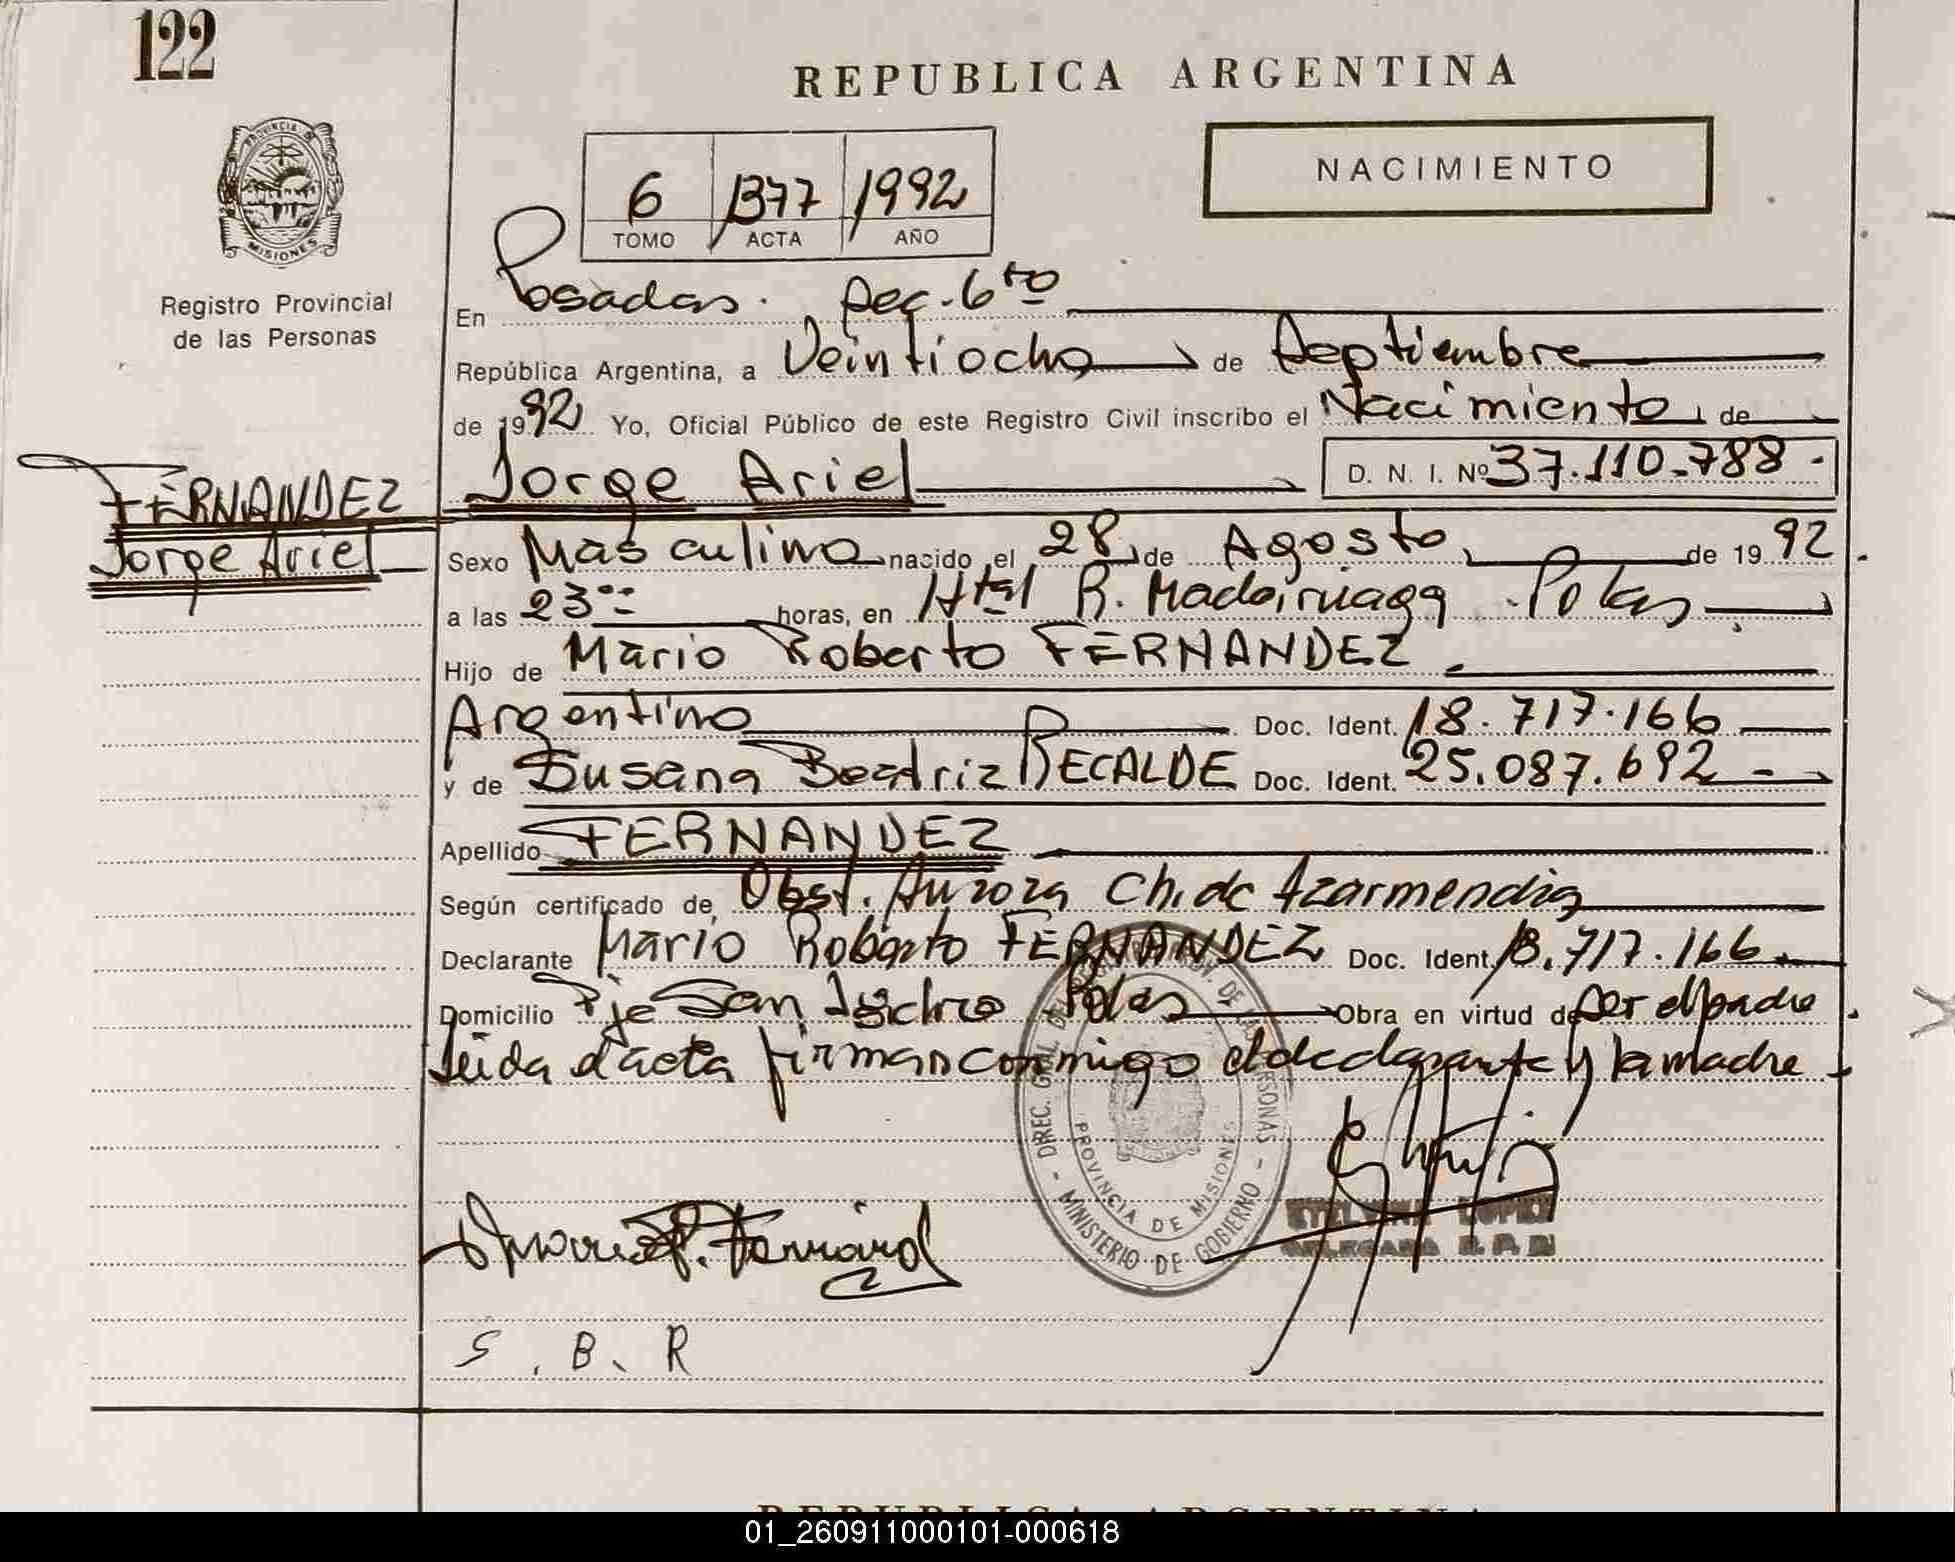 122
REPUBLICA ARGENTINA
NACIMIENTO
6 1377 1992
TOMO ACTA AÑO
PROVINCIA DE
MISIONES
Registro Provincial
de las Personas
En Posadas. Sec. 6to
República Argentina, a Veintiocho de Septiembre
de 1992 Yo, Oficial Público de este Registro Civil inscribo el Nacimiento de
FERNANDEZ
Jorge Ariel
Jorge Ariel D. N. I. Nº 37.110.788
Sexo Masculino nacido el 28 de Agosto de 1992
a las 23 horas, en Htal R. Madariaga Pdas
Hijo de Mario Roberto FERNANDEZ
Argentino Doc. Ident. 18.717.166
y de Susana Beatriz RECALDE Doc. Ident. 25.087.692
Apellido FERNANDEZ
Según certificado de Obst. Aurora Ch. de Azarmendia
Declarante Mario Roberto FERNANDEZ Doc. Ident. 18.717.166
Domicilio Pje San Isidro Pdas Obra en virtud de Ser el padre
Leida el acta firman conmigo el declarante y la madre
DIREC. GRAL. DEL PROV. DE PERSONAS
PROVINCIA DE MISIONES
MINISTERIO DE GOBIERNO
LOPEZ
S. B. R
REPUBLICA ARGENTINA
01_260911000101-000618